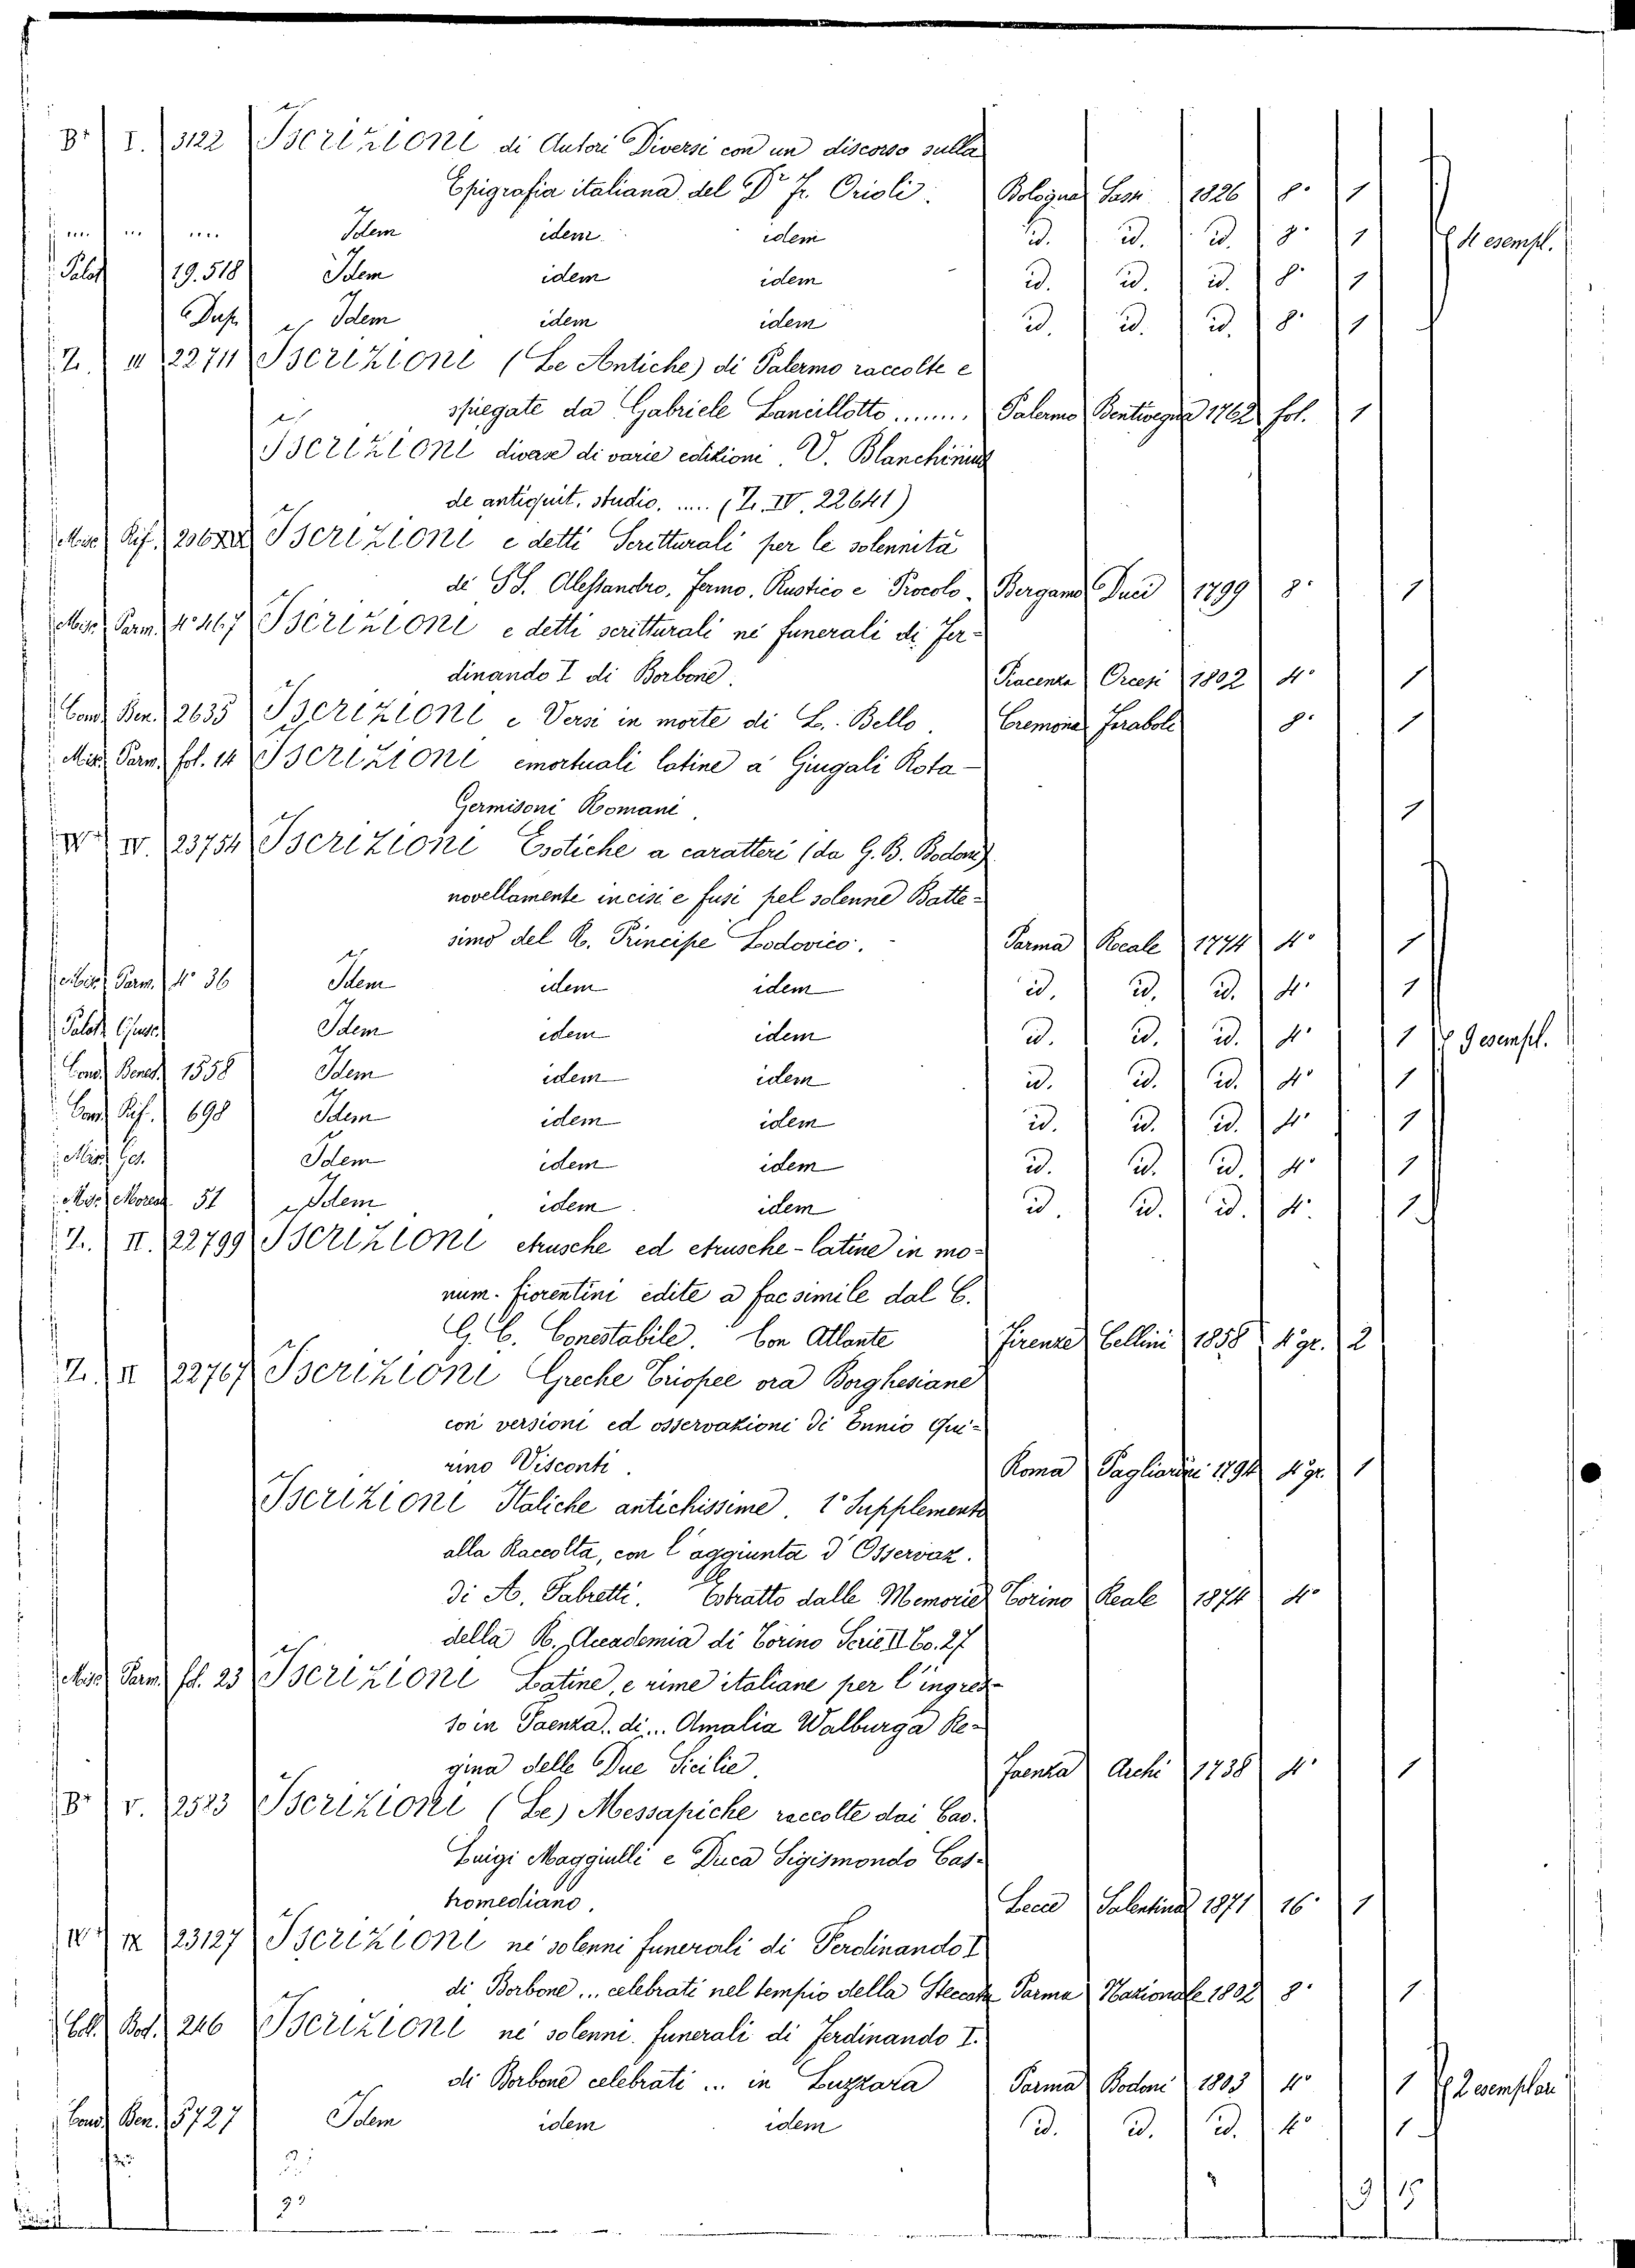 B.r I. 3122 Iscrizioni di Autori Diversi con un discorso sulla
Epigrafia italiana del Dr Fr. Orioli. Bologna Sassi 1826 8° 1
.... ... .... Idem idem idem id. id. id. 8° 1 4 esempl.
Palat 19.518 Idem idem idem id. id. id. 8° 1
Dup. Idem idem idem id. id. id. 8° 1
Z. III 22711 Iscrizioni (Le Antiche) di Palermo raccolte e
spiegate da Gabriele Lancillotto ....... Palermo Bentivegna 1762 fol. 1
Iscrizioni divase di varie edizioni. V. Blanchinius
de antiquit. studio. ..... (Z. IV. 22641)
Misc. Rif. Iscrizioni e detti Scritturali per le solennità
de SS. Alessandro, Fermo, Rustico e Procolo. Bergamo Duci 1799 8° 1
Misc. Parm. 4° 467 Iscrizioni e detti scritturali ne' funerali di Fer-
dinando I di Borbone. Piacenza Orcesi 1802 4° 1
Cond. Ben. 2635 Iscrizioni e Versi in morte di L. Bello. Cremona Feraboli 8° 1
Misc. Parm. fol. 14 Iscrizioni emortuali latine a' Giugali Rota-
Germisoni Romani. 1
IV. 23754 Iscrizioni Esotiche a caratteri (da G. B. Bodoni)
novellamente incisi e fusi pel solenne Batte-
simo del R. Principe Lodovico. Parma Reale 1774 4° 1
Misc. Parm. 4° 36 Idem idem idem id. id. id. 4° 1
Palat. Idem idem idem id. id. id. 4° 1 7 esempl.
Cond. Bened. 1558 Idem idem idem id. id. id. 4° 1
Cond. Rif. 698 Idem idem idem id. id. id. 4° 1
Misc. Ges. Idem idem idem id. id. id. 4° 1
Misc. Moreau 51 Idem idem idem id. id. id. 4° 1
Z. II. 22799 Iscrizioni etrusche ed etrusche-latine in mo-
num. fiorentini edite a facsimile dal C.
G. C. Conestabile. Con Atlante Firenze Cellini 1858 4° gr. 2
Z. II 22767 Iscrizioni Greche Triopee ora Borghesiane
con versioni ed osservazioni di Ennio Qui-
rino Visconti. Roma Pagliarini 1794 4° gr. 1
Iscrizioni Italiche antichissime. 1° Supplemento
alla Raccolta, con l'aggiunta d'Osservaz.
di A. Fabretti. Estratto dalle Memorie Torino Reale 1874 4°
della R. Accademia di Torino Serie II To. 27
Misc. Parm. fol. 23 Iscrizioni Latine, e rime italiane per l'ingres-
so in Faenza.. di... Amalia Walburga Re-
gina delle Due Sicilie. Faenza Archi 1738 4° 1
B.r V. 2583 Iscrizioni (Le) Messapiche raccolte dai Cav.
Luigi Maggiulli e Duca Sigismondo Cas-
tromediano. Lecce Salentina 1871 16° 1
IX 23127 Iscrizioni ne' solenni funerali di Ferdinando I
di Borbone ... celebrati nel tempio della Steccata Parma Nazionale 1802 8° 1
Coll. Bod. 246 Iscrizioni ne' solenni funerali di Ferdinando I.
di Borbone celebrati ... in Luzzara Parma Bodoni 1803 4° 1 2 esemplari
Cond. Ben. 5727 Idem idem idem id. id. id. 4° 1